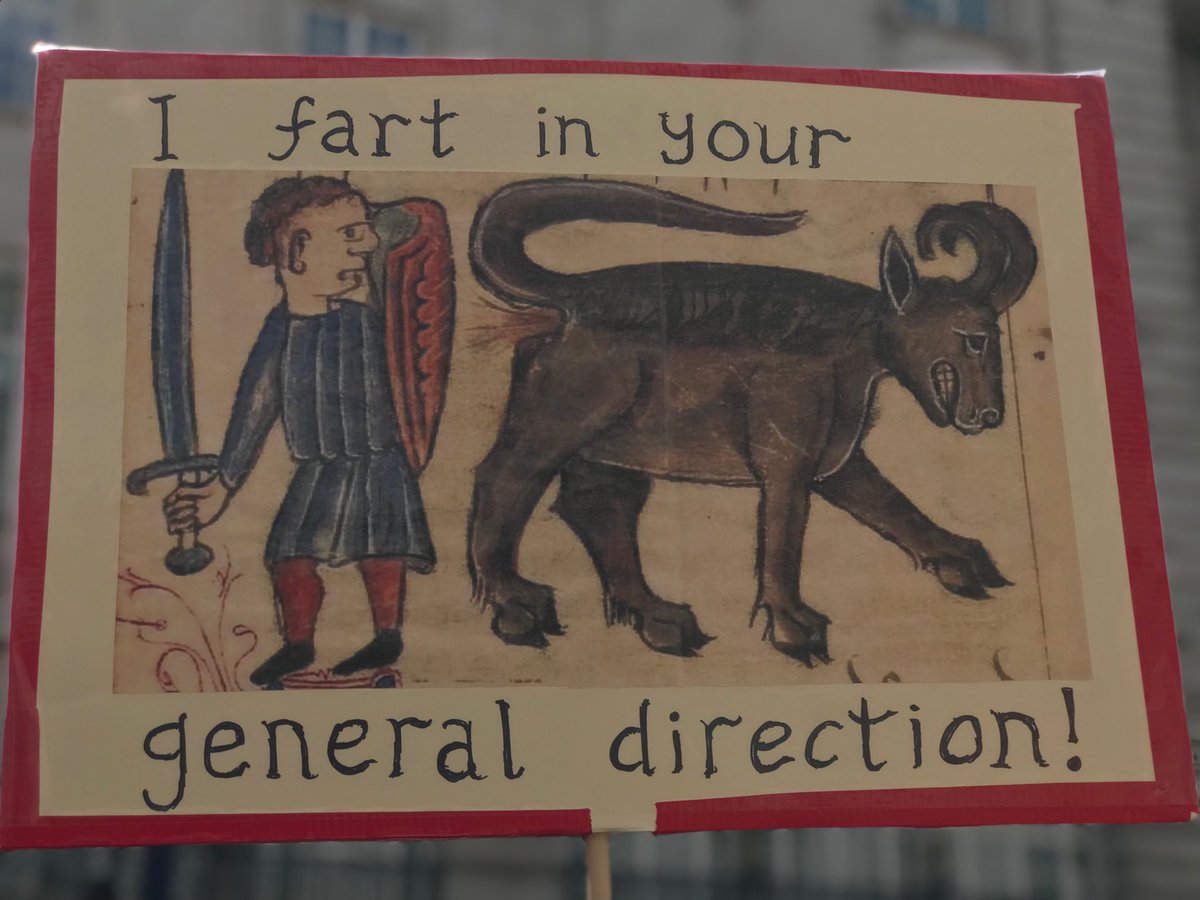 I fart in your
general direction!